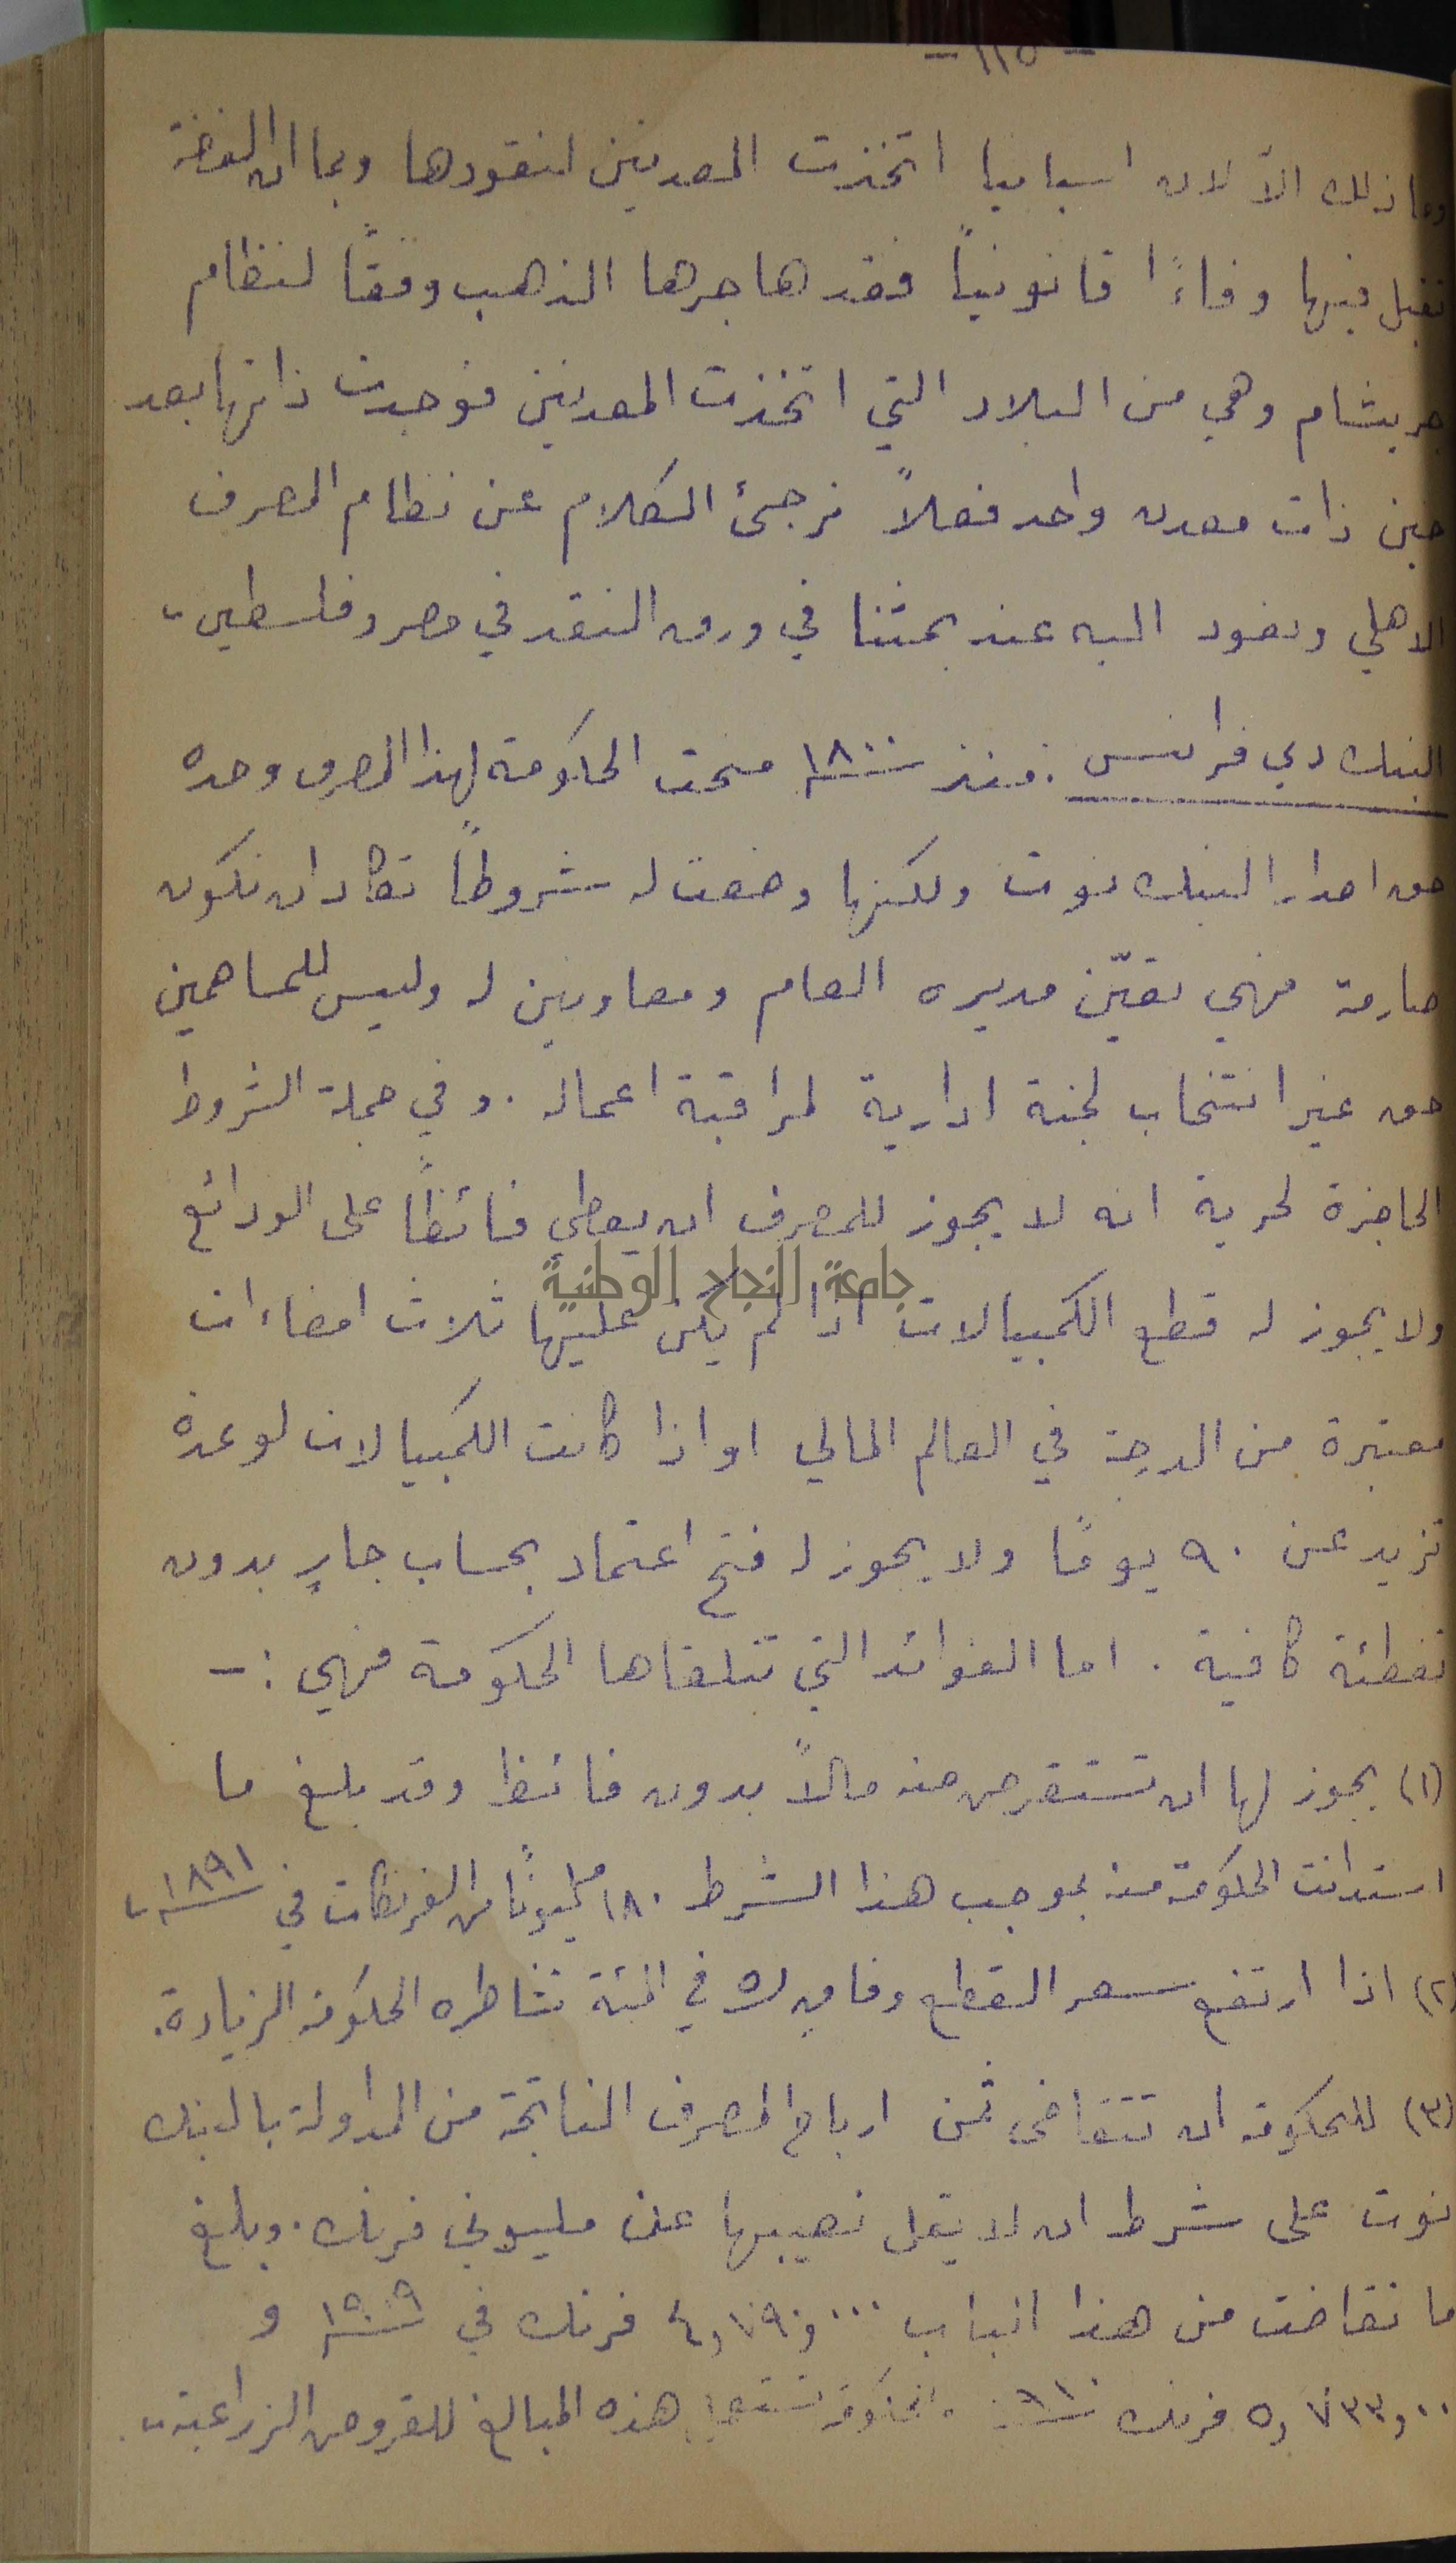 - ١١٥ -
وما ذلك الّا لان اسبانيا اتخذت المعدنين لنقودها وبما ان الفضة
تقبل فيها وفاءً قانونياً فقد هاجرها الذهب وفقاً لنظام
جريشام وهي من البلاد التي اتخذت المعدنين فوجدت ذاتها بعد
حين ذات معدن واحد فعلاً نرجئ الكلام عن نظام المصرف
الاهلي ونعود اليه عند بحثنا في ورق النقد في مصر وفلسطين .
البنك دي فرانس . منذ سنة ١٨٠٠ منحت الحكومة لهذا المصرف وحده
حق اصدار البنك نوت ولكنها وضعت له شروطاً تكاد ان تكون
صارمة فهي تعيّن مديره العام ومعاونين له وليس للمساهمين
حق غير انتخاب لجنة ادارية لمراقبة اعماله . وفي جملة الشروط
الحاجزة لحرية انه لا يجوز للمصرف ان يعطي فائظاً على الودائع
جامعة النجاح الوطنية
ولا يجوز له قطع الكمبيالات اذا لم يكن عليها ثلاث امضاءات
معتبرة من الدرجة في العالم المالي او اذا كانت الكمبيالات لوعدة
تزيد عن ٩٠ يوماً ولا يجوز له فتح اعتماد بحساب جارٍ بدون
تغطئة كافية . اما الفوائد التي تتلقاها الحكومة فهي :-
(١) يجوز لها ان تستقرض منه مالاً بدون فائظ وقد بلغ ما
استدانت الحكومة منه بموجب هذا الشرط ١٨٠ مليوناً من الفرنكات في سنة ١٨٩١ .
(٢) اذا ارتفع سعر القطع وفاق ال٥ في المئة تشاطره الحكومة الزيادة.
(٣) للحكومة ان تتقاضى ثمن ارباح المصرف الناتجة من المداولة بالبنك
نوت على شرط ان لا يقل نصيبها عن مليوني فرنك . وبلغ
ما تقاضت من هذا الباب فرنك في سنة و
فرنك سنة الحكومة هذه المبالغ للقروض الزراعية .